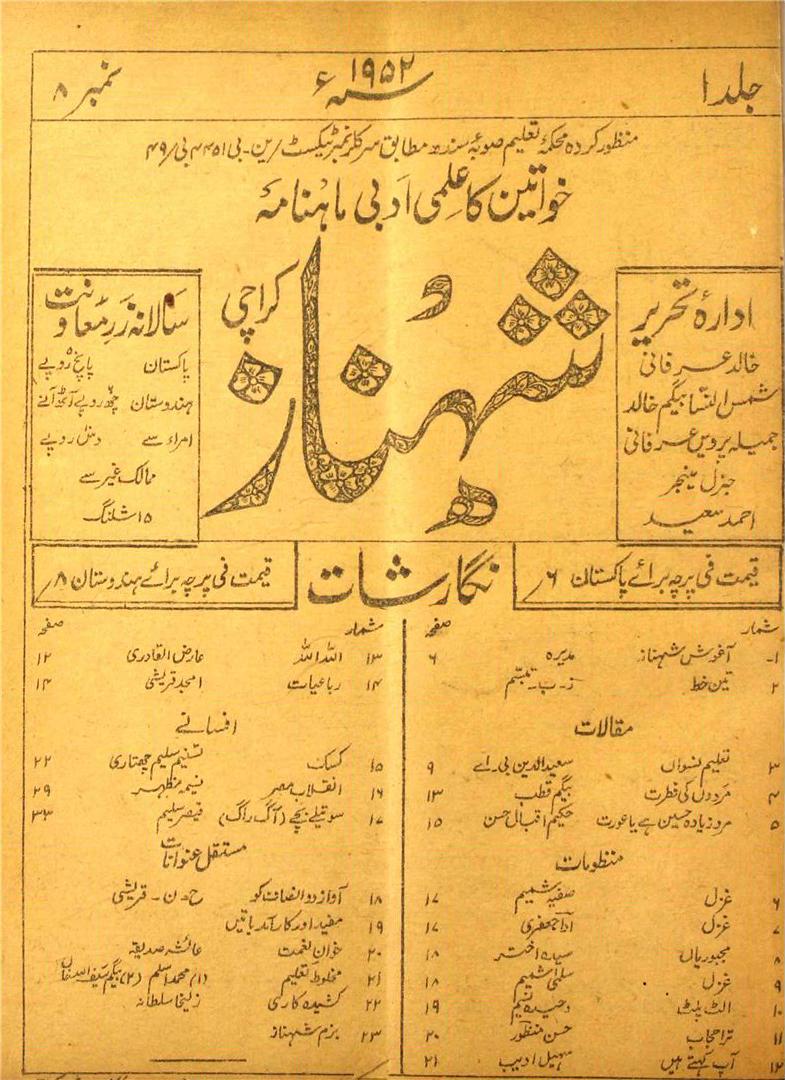 جلد ۱
سنہ ۱۹۵۲ء
نمبر ۸
منظور کردہ محکمۂ تعلیم صوبۂ سندھ مطابق سرکلر نمبر ٹیکسٹ
خواتین کا علمی ادبی ماہنامہ
شہناز
کراچی
ادارۂ تحریر
خالد عرفانی
شمس النسا بیگم خالد
جمیلہ پروین عرفانی
جنرل مینجر
احمد سعید
سالانہ زرِ معاونت
پاکستان پانچ روپے
ہندوستان چھ روپے آٹھ آنے
امراء سے دس روپے
ممالک غیر سے
۱۵ شلنگ
قیمت فی پرچہ برائے پاکستان ۶/
نگارشات
قیمت فی پرچہ برائے ہندوستان ۸/
شمار صفحہ
۱- آغوش شہناز مدیرہ ۶
۲ تین خط ز-ب- تبسّم
مقالات
۳ تعلیم نسواں سعید الدین بی-اے ۹
۴ مردوں کی فطرت بیگم قطب ۱۳
۵ مرد زیادہ حسین ہے یا عورت حکیم اقبال حسن ۱۵
منظومات
۶ غزل صفیہ شمیم ۱۷
۷ غزل ادا جعفری ۱۷
۸ مجبوریاں سیدہ اختر ۱۸
۹ غزل سلمیٰ شمیم ۱۸
۱۰ الٹ پلٹ وحیدہ نسیم ۱۹
۱۱ ترا حجاب حسن منظور ۲۰
۱۲ آپ کہتے ہیں سہیل ادیب ۲۱
شمار صفحہ
۱۳ اللہ اللہ عارض القادری ۱۲
۱۴ رباعیات امجد قریشی ۱۴
افسانے
۱۵ کسک تسنیم سلیم چھتاری ۲۲
۱۶ انقلاب مصر نسیمہ مظہر ۲۹
۱۷ سوتیلے بچے (آگ راگ) قیصر سلیم ۳۳
مستقل عنوانات
۱۸ آواز دو انصاف کو ح-ن-قریشی
۱۹ مفید اور کارآمد باتیں
۲۰ خوان نعمت عائشہ صدیقہ
۲۱ مخلوط تعلیم (۱) محمد اسلم (۲) بیگم سیف اللہ خاں
۲۲ کشیدہ کاری زلیخا سلطانہ
۲۳ بزم شہناز